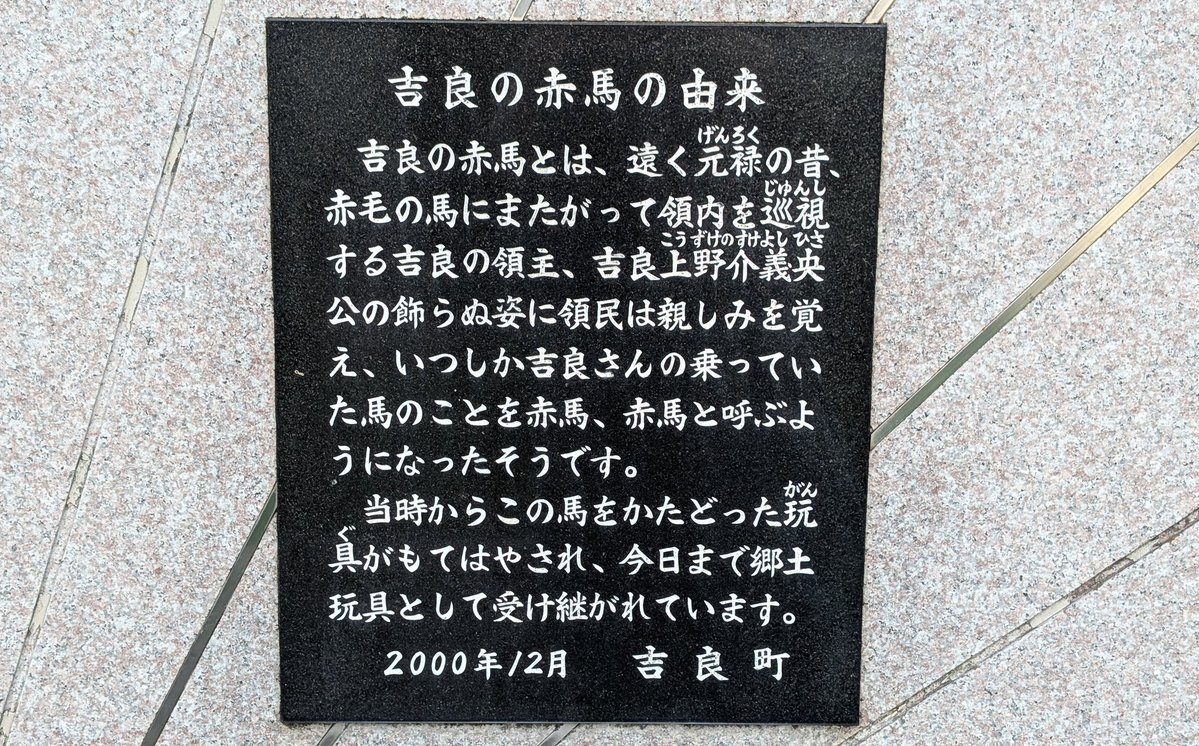 吉良の赤馬の由来
吉良の赤馬とは、遠く元禄の昔、
げんろく
赤毛の馬にまたがって領内を巡視
じゅんし
する吉良の領主、吉良上野介義央
こうずけのすけよしひさ
公の飾らぬ姿に領民は親しみを覚
え、いつしか吉良さんの乗ってい
た馬のことを赤馬、赤馬と呼ぶよ
うになったそうです。
当時からこの馬をかたどった玩
がん
具がもてはやされ、今日まで郷土
ぐ
玩具として受け継がれています。
2000年12月 吉良町